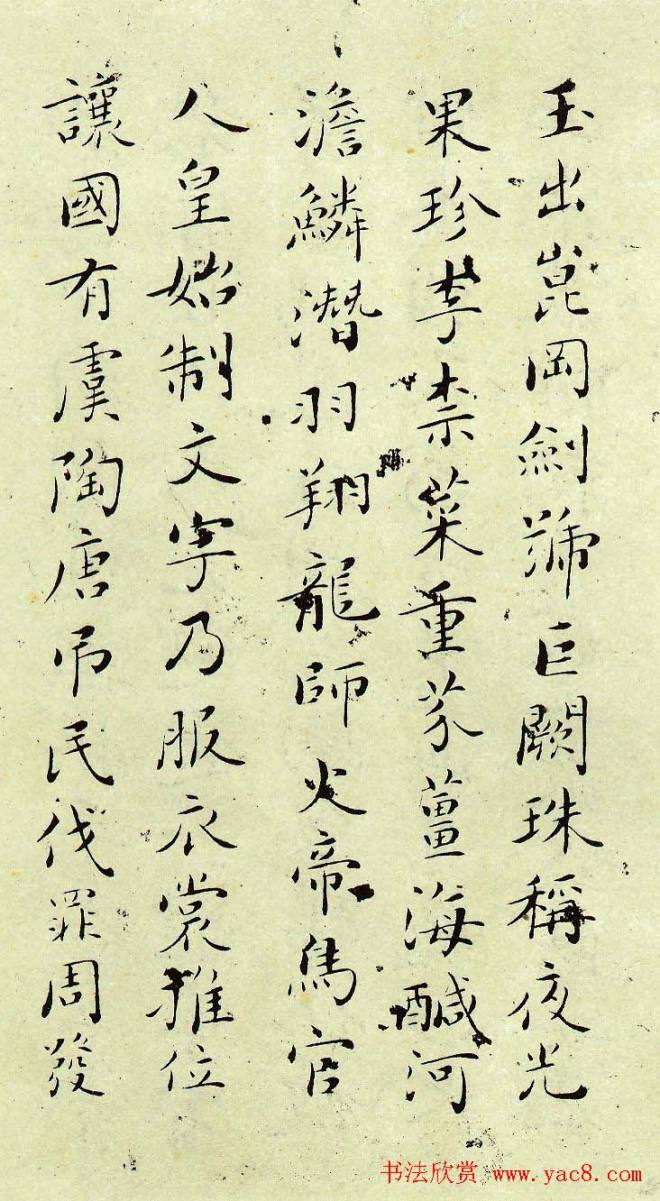 玉出崑岡劍號巨闕珠稱夜光
果珍李柰菜重芥薑海醎河
澹鱗潛羽翔龍師火帝鳥官
人皇始制文字乃服衣裳推位
讓國有虞陶唐吊民伐罪周發
书法欣赏 www.yac8.com